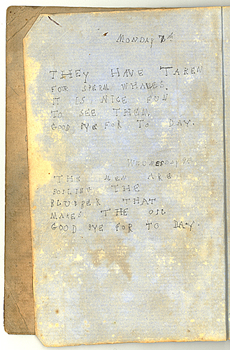 MONDAY 7th
THEY HAVE TAKEN
FOR SPERM WHALES.
IT IS NICE FUN
TO SEE THEM.
GOOD NYE FOR TO DAY.
WEDNESDAY
THE MEN ARE
BOILING THE
BLUBBER THAT
MAKES THE OIL
GOOD NYE FOR TO DAY.